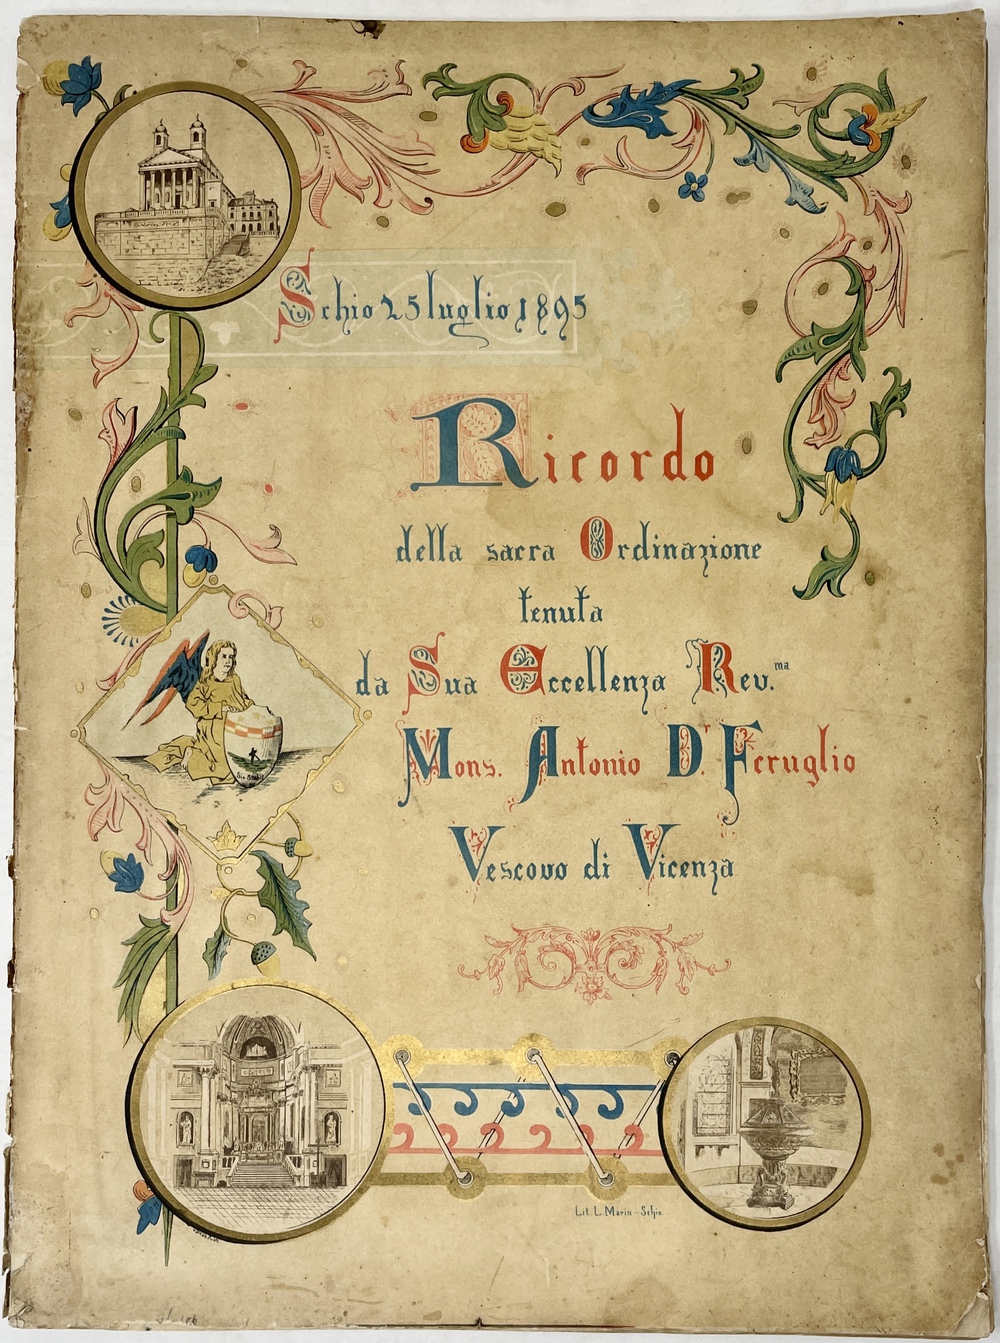 Schio 25 luglio 1895
Ricordo
della sacra Ordinazione
tenuta
da Sua Eccellenza Rev.ma
Mons. Antonio Dr. Feruglio
Vescovo di Vicenza
Lit. L. Marin - Schio